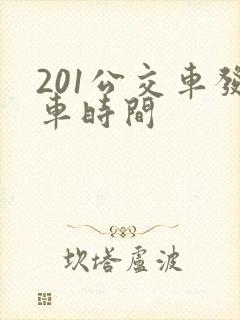 201公交車發
車時間
坎塔盧波